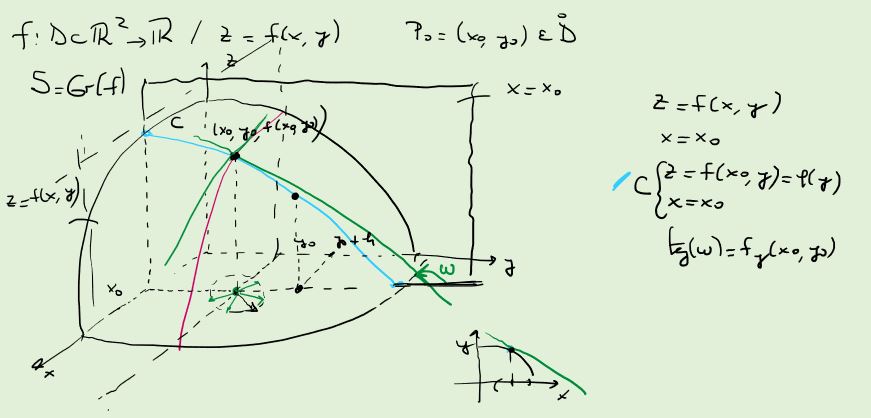 f: D⊂ℝ²→ℝ / z = f(x, y)
P₀ = (x₀, y₀) ε D̊
S = Gr(f)
z
x = x₀
C
(x₀, y₀, f(x₀, y₀))
z = f(x, y)
y₀
y₀ + h
y
ω
x₀
x
z = f(x, y)
x = x₀
C { z = f(x₀, y) = φ(y)
x = x₀
tg(ω) = f_y(x₀, y₀)
y
x